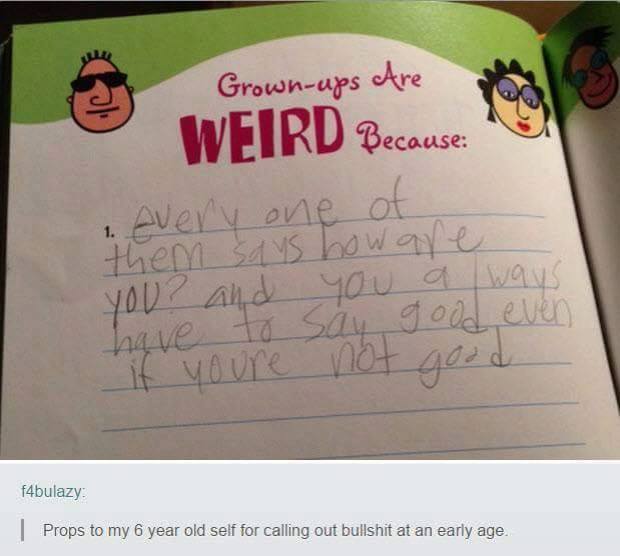 Grown-ups Are
WEIRD Because:
1. every one of
them says how are
you? and you always
have to say good even
if youre not good
f4bulazy:
Props to my 6 year old self for calling out bullshit at an early age.